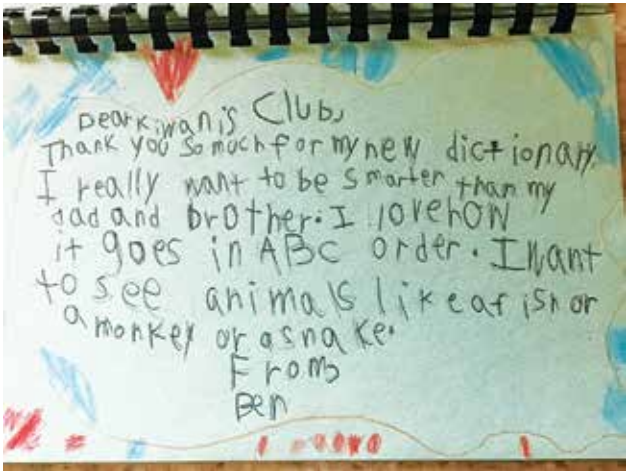 Dear Kiwanis Club,
Thank you so much for my new dictionary.
I really want to be smarter than my
dad and brother. I love how
it goes in ABC order. I want
to see animals like a fish or
a monkey or a snake.
From,
Ben